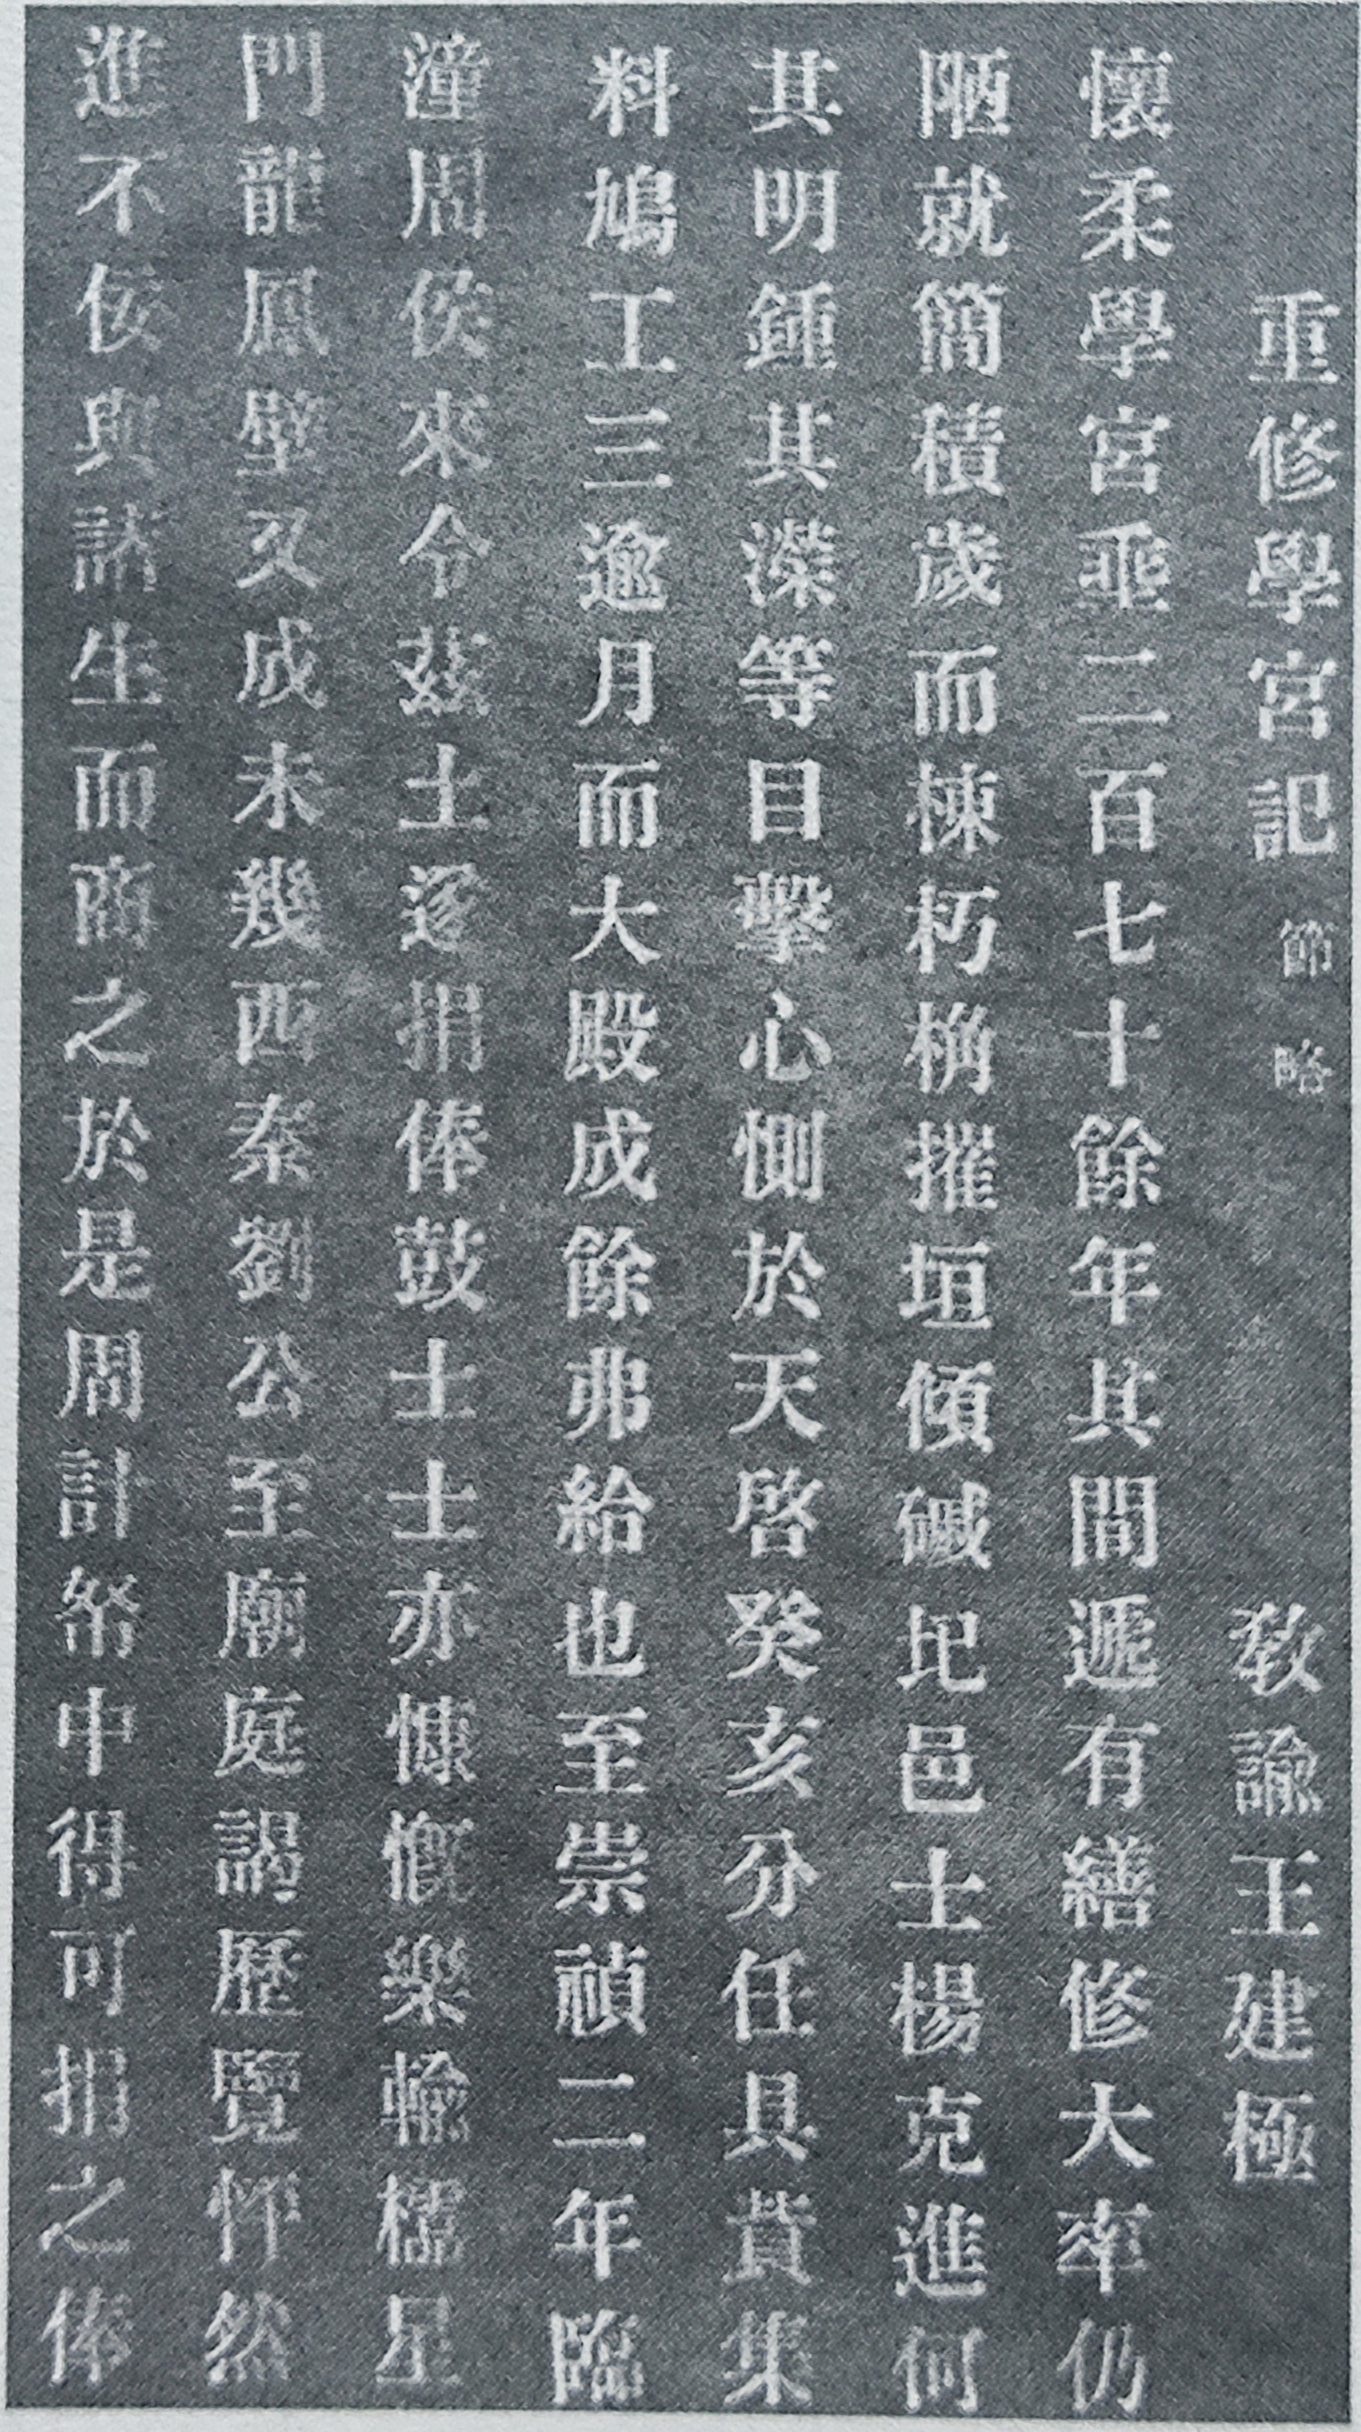 重修學宮記 節略 教諭王建極
懷柔學宮垂二百七十餘年其間遞有繕修大率仍
陋就簡積歲而棟朽桷摧垣傾鹹圯邑士楊克進何
其明鍾其深等目擊心惻於天啓癸亥分任具貲集
料鳩工三逾月而大殿成餘弗給也至崇禎二年臨
潼周侯來令茲土遂捐俸鼓士士亦慷慨樂輸櫺星
門龍鳳壁又成未幾西秦劉公至廟庭謁歷覽怦然
進不佞與諸生而商之於是周計帑中得可捐之俸